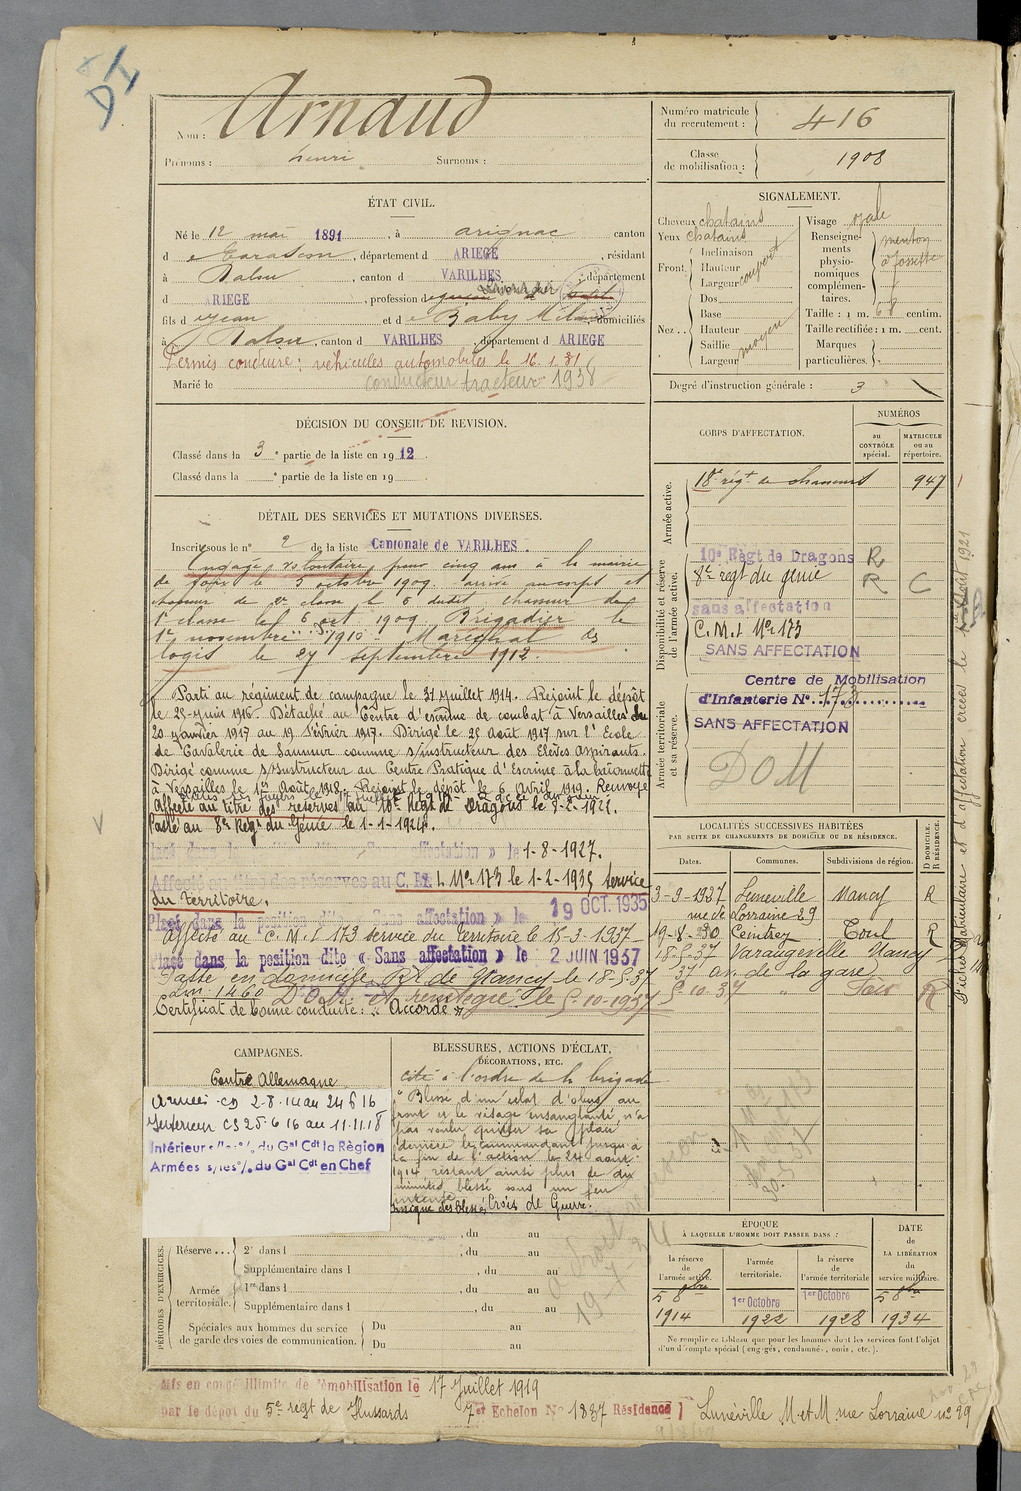 DI
Nom : Arnaud
Prénoms : henri Surnoms :
Numéro matricule du recrutement : 416
Classe de mobilisation : 1908
ÉTAT CIVIL.
Né le 12 mai 1891, à arignac canton
d e Tarascon, département d ARIEGE, résidant
à Dalou, canton d VARILHES, département
d ARIEGE, profession d
fils d e Jean et d e Baby domiciliés
à Dalou, canton d VARILHES, département d ARIEGE
Permis conduire : véhicules automobiles le 16.1.31
conducteur tracteur 1938
Marié le
SIGNALEMENT.
Cheveux chatains
Yeux chatains
Front. Inclinaison
Hauteur
Largeur
Nez.. Dos
Base
Hauteur
Saillie
Largeur
moyen
Visage ovale
Renseignements physionomiques complémentaires. menton à fossette
Taille : 1 m. 68 centim.
Taille rectifiée : 1 m. cent.
Marques particulières.
Degré d'instruction générale : 3
DÉCISION DU CONSEIL DE REVISION.
Classé dans la 3e partie de la liste en 1912.
Classé dans la e partie de la liste en 19
DÉTAIL DES SERVICES ET MUTATIONS DIVERSES.
Inscrit sous le n° 2 de la liste Cantonale de VARILHES.
Engagé volontaire pour cinq ans à la mairie
de Foix le 5 octobre 1909. Arrivé au corps et
chasseur de 2e classe le 6 dudit. Chasseur de
1e classe le 6 oct 1909. Brigadier le
1er novembre 1910. Maréchal des
logis le 27 septembre 1912.
Parti au régiment de campagne le 31 juillet 1914. Rejoint le dépôt
le 25 Juin 1916. Détaché au Centre d'escrime de combat à Versailles du
20 janvier 1917 au 19 Février 1917. Dirigé le 25 août 1917 sur l'Ecole
de Cavalerie de Saumur comme s/instructeur des Elèves aspirants.
Dirigé comme s/Instructeur au Centre Pratique d'Escrime à la baïonnette
à Versailles le 1er Août 1918. Rejoint le dépôt le 6 Avril 1919. Renvoyé
dans ses foyers le 17 juillet 1919
Affecté au titre des réserves au 10e Régt de Dragons le
Passé au 8e Régt du Génie le 1-1-1924.
Placé dans la position dite « Sans affectation » le 1-8-1927.
Affecté au titre des réserves au C. M. I. No 173 le 1-2-1935 service
du Territoire.
Placé dans la position dite « Sans affectation » le 19 OCT. 1935
Affecté au C. M. I 173 Service du Territoire le 15-3-1937
Placé dans la position dite « Sans affectation » le 2 JUIN 1937
Passé en domicile Rt de Nancy le 18-5-37
D.O.M. et réintégré le 5-10-1937
Certificat de bonne conduite : « Accordé »
CORPS D'AFFECTATION.
NUMÉROS
au CONTRÔLE spécial.
MATRICULE ou au répertoire.
Armée active.
18e régt de chasseurs 947
Disponibilité et réserve de l'armée active.
10e Régt de Dragons R
8e regt du génie R C
sans affectation
C. M. I No 173
SANS AFFECTATION
Armée territoriale et sa réserve.
Centre de Mobilisation
d'Infanterie N° 173
SANS AFFECTATION
DOM
LOCALITÉS SUCCESSIVES HABITÉES
PAR SUITE DE CHANGEMENTS DE DOMICILE OU DE RÉSIDENCE.
Dates. Communes. Subdivisions de région. D DOMICILE. R RÉSIDENCE.
3-9-1927 Luneville Nancy R
rue de Lorraine 29
19-8-30 Ceintrey Toul R
18-5-37 Varangeville Nancy
37 av. de la gare
5-10-37 " R
CAMPAGNES.
Contre Allemagne
Armées CD 2-8-14 au 24 6 16
Intérieur CS 25-6 16 au 11.11.18
Intérieur s/les o/ du Gal Cdt la Région
Armées s/les o/ du Gal Cdt en Chef
BLESSURES, ACTIONS D'ÉCLAT,
DÉCORATIONS, ETC.
cité à l'ordre de la brigade
"Blessé d'un éclat d'obus au
front et le visage ensanglanté, n'a
pas voulu quitter sa place
derrière le commandant jusqu'à
la fin de l'action le 24 août
1914 restant ainsi plus de dix
minutes blessé sous un feu
intense
Insigne des blessés, Croix de Guerre.
PÉRIODES D'EXERCICES.
, du au
Réserve ... 2e dans l , du au
Supplémentaire dans l , du au
Armée territoriale. 1re dans l , du au
Supplémentaire dans l , du au
Spéciales aux hommes du service de garde des voies de communication. Du au
Du au
ÉPOQUE
À LAQUELLE L'HOMME DOIT PASSER DANS :
la réserve de l'armée active. l'armée territoriale. la réserve de l'armée territoriale
DATE DE LA LIBÉRATION du service militaire.
5 8bre 1914
1er Octobre 1922
1er Octobre 1928
5 8bre 1934
Ne remplir ce tableau que pour les hommes dont les services font l'objet
d'un décompte spécial (engagés, condamnés, omis, etc.).
Mis en congé illimité de démobilisation le 17 Juillet 1919
par le dépôt du 5e regt de Hussards 7e Echelon No 1837 Résidence Lunéville M et M rue Lorraine no 29